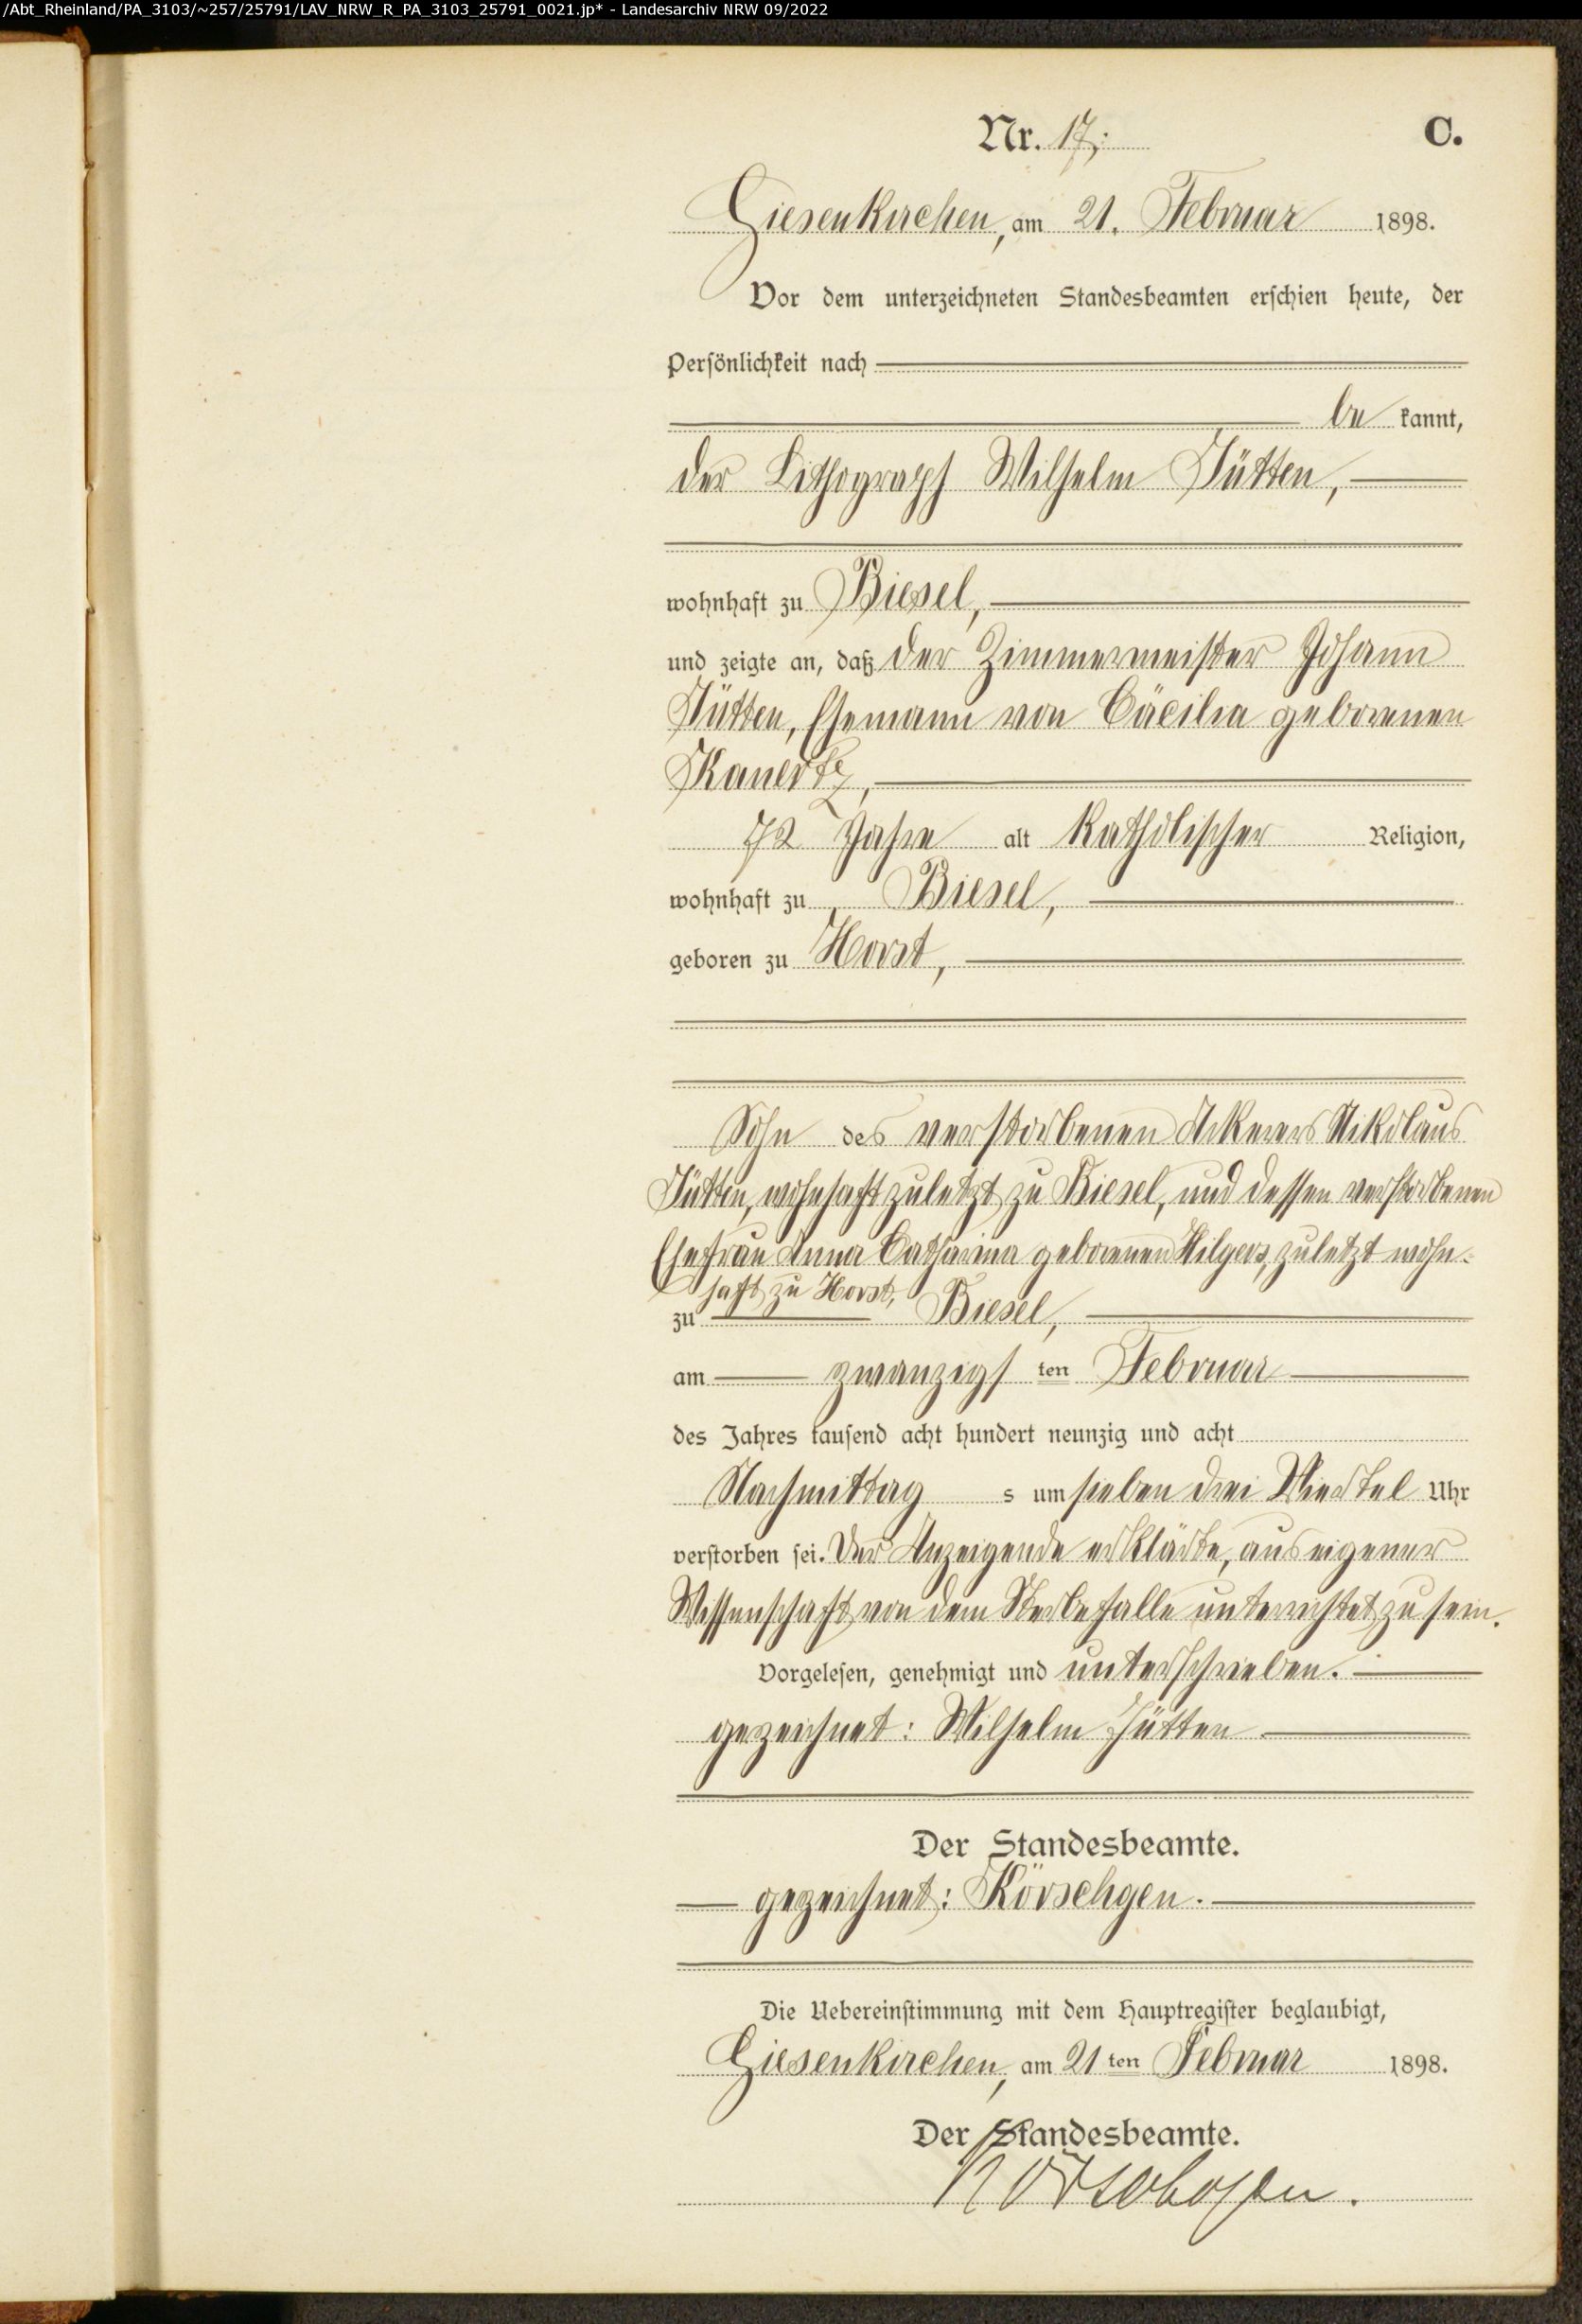 /Abt_Rheinland/PA_3103/~257/25791/LAV_NRW_R_PA_3103_25791_0021.jp* - Landesarchiv NRW 09/2022
Nr. 17; C.
Giesenkirchen, am 21. Februar 1898.
Vor dem unterzeichneten Standesbeamten erschien heute, der
Persönlichkeit nach
be kannt,
der Lithograph Wilhelm Hütten,
wohnhaft zu Biesel,
und zeigte an, daß der Zimmermeister Johann
Hütten, Ehemann von Cäcilia geborenen
Kanertz,
72 Jahre alt katholischer Religion,
wohnhaft zu Biesel,
geboren zu Horst,
Sohn des verstorbenen Ackerers Nikolaus
Hütten, wohnhaft zuletzt zu Biesel, und dessen verstorbenen
Ehefrau Anna Catharina geborenen Hilgers, zuletzt wohn-
haft zu Horst,
zu Biesel,
am zwanzigs ten Februar
des Jahres tausend acht hundert neunzig und acht
Nachmittag s um sieben drei Viertel Uhr
verstorben sei. Der Anzeigende erklärte, aus eigener
Wissenschaft von dem Sterbefalle unterrichtet zu sein.
Vorgelesen, genehmigt und unterschrieben.
gezeichnet: Wilhelm Hütten
Der Standesbeamte.
gezeichnet: Körschgen.
Die Uebereinstimmung mit dem Hauptregister beglaubigt,
Giesenkirchen, am 21 ten Februar 1898.
Der Standesbeamte.
Körschgen.